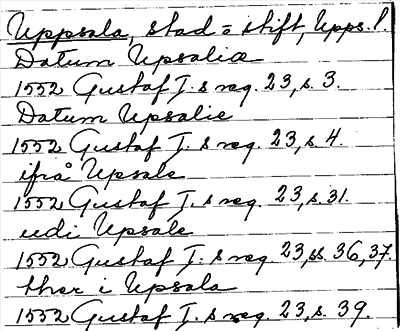 Uppsala, stad = stift, Upps. l.
Datum Upsaliæ
1552 Gustaf I. s reg. 23, s. 3.
Datum Upsalie
1552 Gustaf I. s reg. 23, s. 4.
ifrå Upsale
1552 Gustaf I. s reg. 23, s. 31.
udi Upsale
1552 Gustaf I. s reg. 23, ss. 36, 37.
ther i Upsala
1552 Gustaf I. s reg. 23, s. 39.